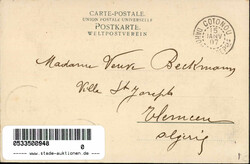 CARTE-POSTALE
UNION POSTALE UNIVERSELLE
POSTKARTE
WELTPOSTVEREIN
COTONOU
15
JANV
Madame Veuve Beckmann
Villa St Joseph
Tlemcen
Algérie
0533500948
0
www.stade-auktionen.de